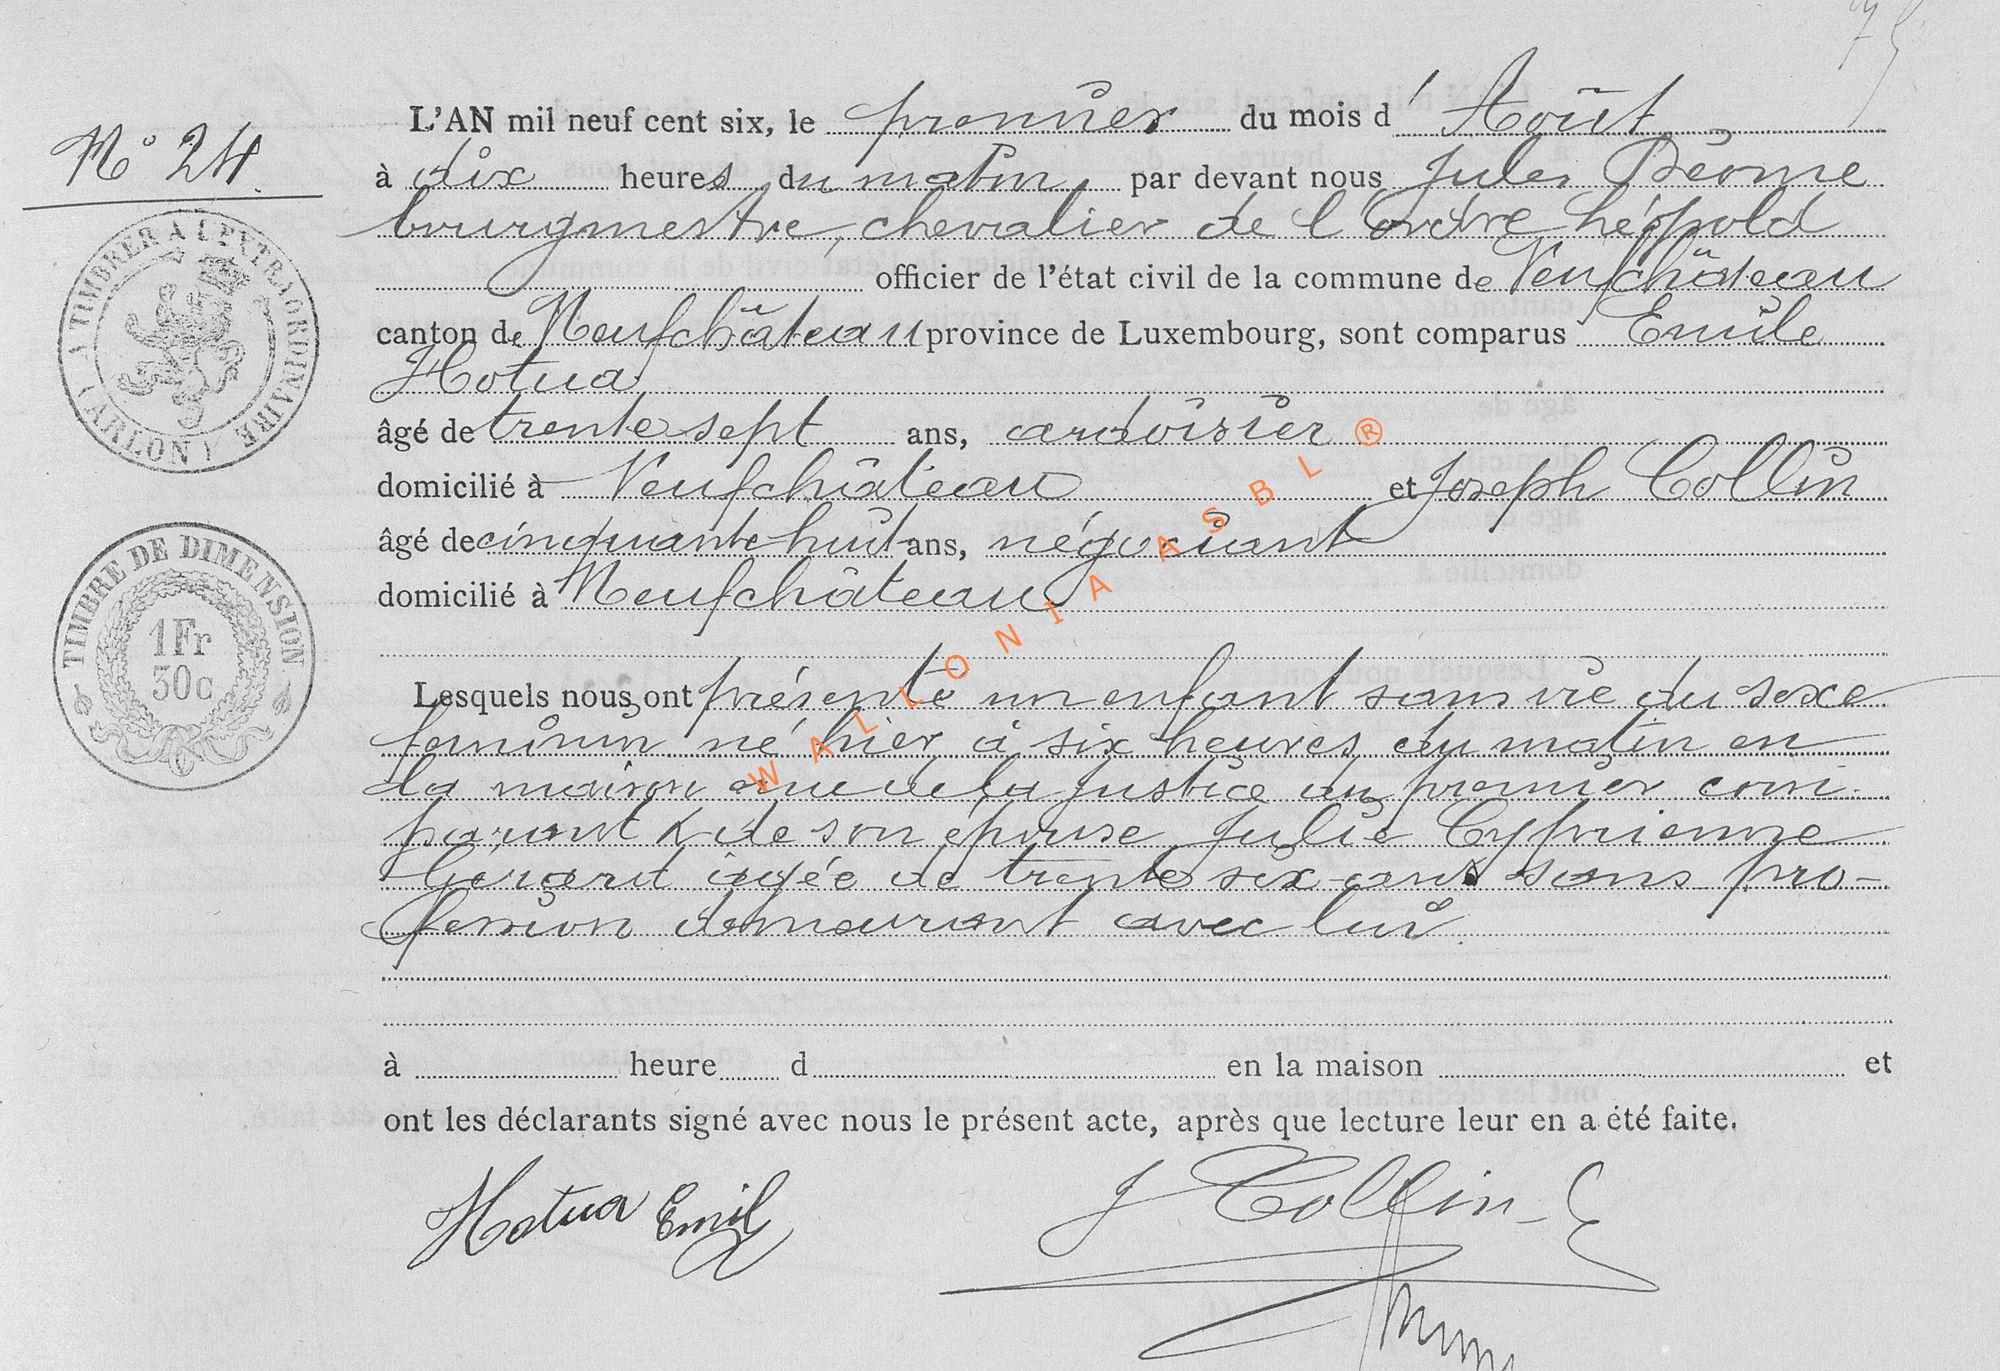 75
L'AN mil neuf cent six, le premier du mois d'Août
N° 24
à dix heures du matin par devant nous Jules Déome
bourgmestre, chevalier de l'ordre Léopold
officier de l'état civil de la commune de Neufchâteau
canton de Neufchâteau province de Luxembourg, sont comparus Emile
Hotua
âgé de trente sept ans, ardoisier
domicilié à Neufchâteau et Joseph Collin
âgé de cinquante huit ans, négociant
domicilié à Neufchâteau
Lesquels nous ont présenté un enfant sans vie du sexe
féminin né hier à six heures du matin en
la maison rue de la Justice du premier com
parant & de son épouse Julie Cyprienne
Gérard âgée de trente six ans sans pro-
fession demeurant avec lui.
à heure d en la maison et
ont les déclarants signé avec nous le présent acte, après que lecture leur en a été faite.
Hotua Emil
J Collin
A TIMBRER A L'EXTRAORDINAIRE
(ARLON)
TIMBRE DE DIMENSION
1 Fr
30 c
WALLONIA ASBL ®